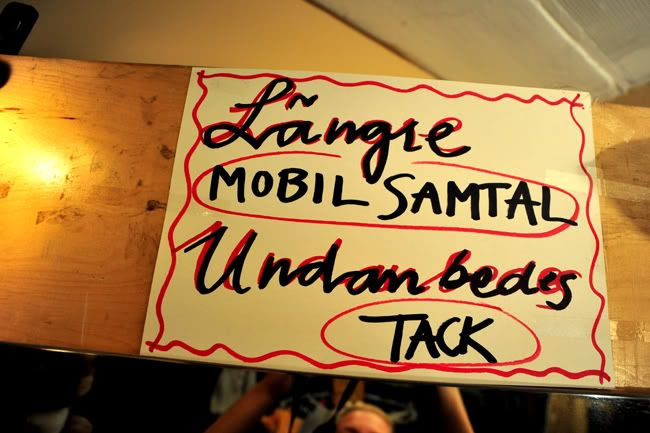 Längre
MOBIL SAMTAL
Undanbedes
TACK